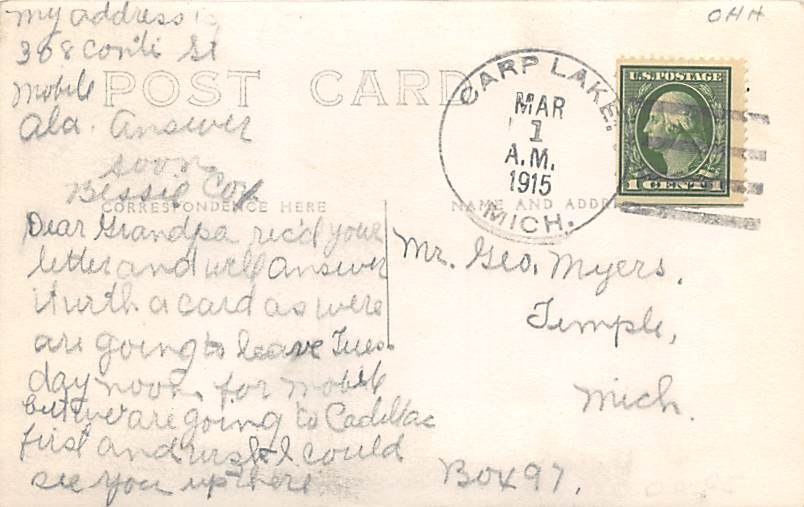 my address is
308 Conti St
Mobile
Ala. Answer
soon
Bessie Cox
OHH
POST CARD
CARP LAKE,
MAR
1
A.M.
1915
MICH.
U.S. POSTAGE
1 CENT 1
CORRESPONDENCE HERE
NAME AND ADDRE
Dear Grandpa rec'd your
letter and will answer
it with a card as were
are going to leave Tues.
day noon, for Mobile
but we are going to Cadillac
first and wish I could
see you up there
Mr. Geo. Myers,
Temple,
Mich.
Box 97,